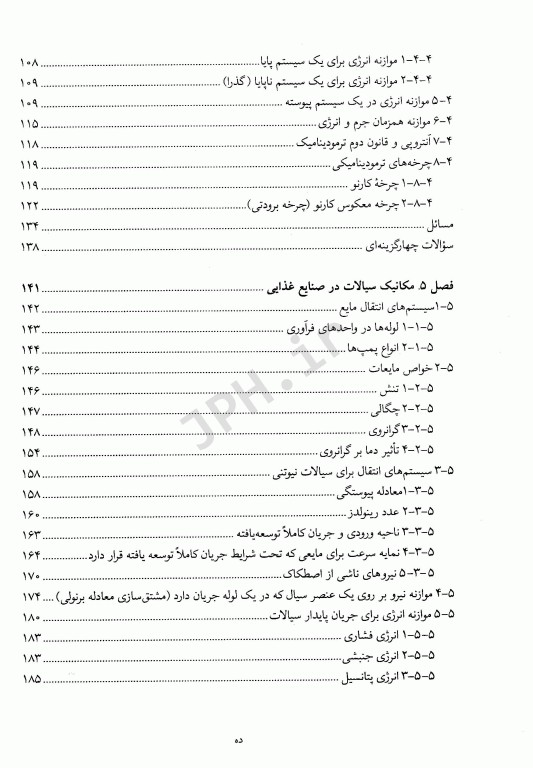 ۴-۴-۱ موازنه انرژی برای یک سیستم پایا ۱۰۸
۴-۴-۲ موازنه انرژی برای یک سیستم ناپایا (گذرا) ۱۰۹
۴-۵ موازنه انرژی در یک سیستم پیوسته ۱۰۹
۴-۶ موازنه همزمان جرم و انرژی ۱۱۵
۴-۷ آنتروپی و قانون دوم ترمودینامیک ۱۱۸
۴-۸ چرخه‌های ترمودینامیکی ۱۱۹
۴-۸-۱ چرخهٔ کارنو ۱۱۹
۴-۸-۲ چرخه معکوس کارنو (چرخه برودتی) ۱۲۲
مسائل ۱۳۴
سؤالات چهارگزینه‌ای ۱۳۸
فصل ۵. مکانیک سیالات در صنایع غذایی ۱۴۱
۵-۱ سیستم‌های انتقال مایع ۱۴۲
۵-۱-۱ لوله‌ها در واحدهای فرآوری ۱۴۳
۵-۱-۲ انواع پمپ‌ها ۱۴۴
۵-۲ خواص مایعات ۱۴۶
۵-۲-۱ تنش ۱۴۶
۵-۲-۲ چگالی ۱۴۷
۵-۲-۳ گرانروی ۱۴۸
۵-۲-۴ تأثیر دما بر گرانروی ۱۵۴
۵-۳ سیستم‌های انتقال برای سیالات نیوتنی ۱۵۸
۵-۳-۱ معادله پیوستگی ۱۵۸
۵-۳-۲ عدد رینولدز ۱۶۰
۵-۳-۳ ناحیه ورودی و جریان کاملاً توسعه‌یافته ۱۶۳
۵-۳-۴ نمایه سرعت برای مایعی که تحت شرایط جریان کاملاً توسعه یافته قرار دارد ۱۶۴
۵-۳-۵ نیروهای ناشی از اصطکاک ۱۷۰
۵-۴ موازنه نیرو بر روی یک عنصر سیال که در یک لوله جریان دارد (مشتق‌سازی معادله برنولی) ۱۷۴
۵-۵ موازنه انرژی برای جریان پایدار سیالات ۱۸۰
۵-۵-۱ انرژی فشاری ۱۸۳
۵-۵-۲ انرژی جنبشی ۱۸۳
۵-۵-۳ انرژی پتانسیل ۱۸۵
ده
JPH.ir